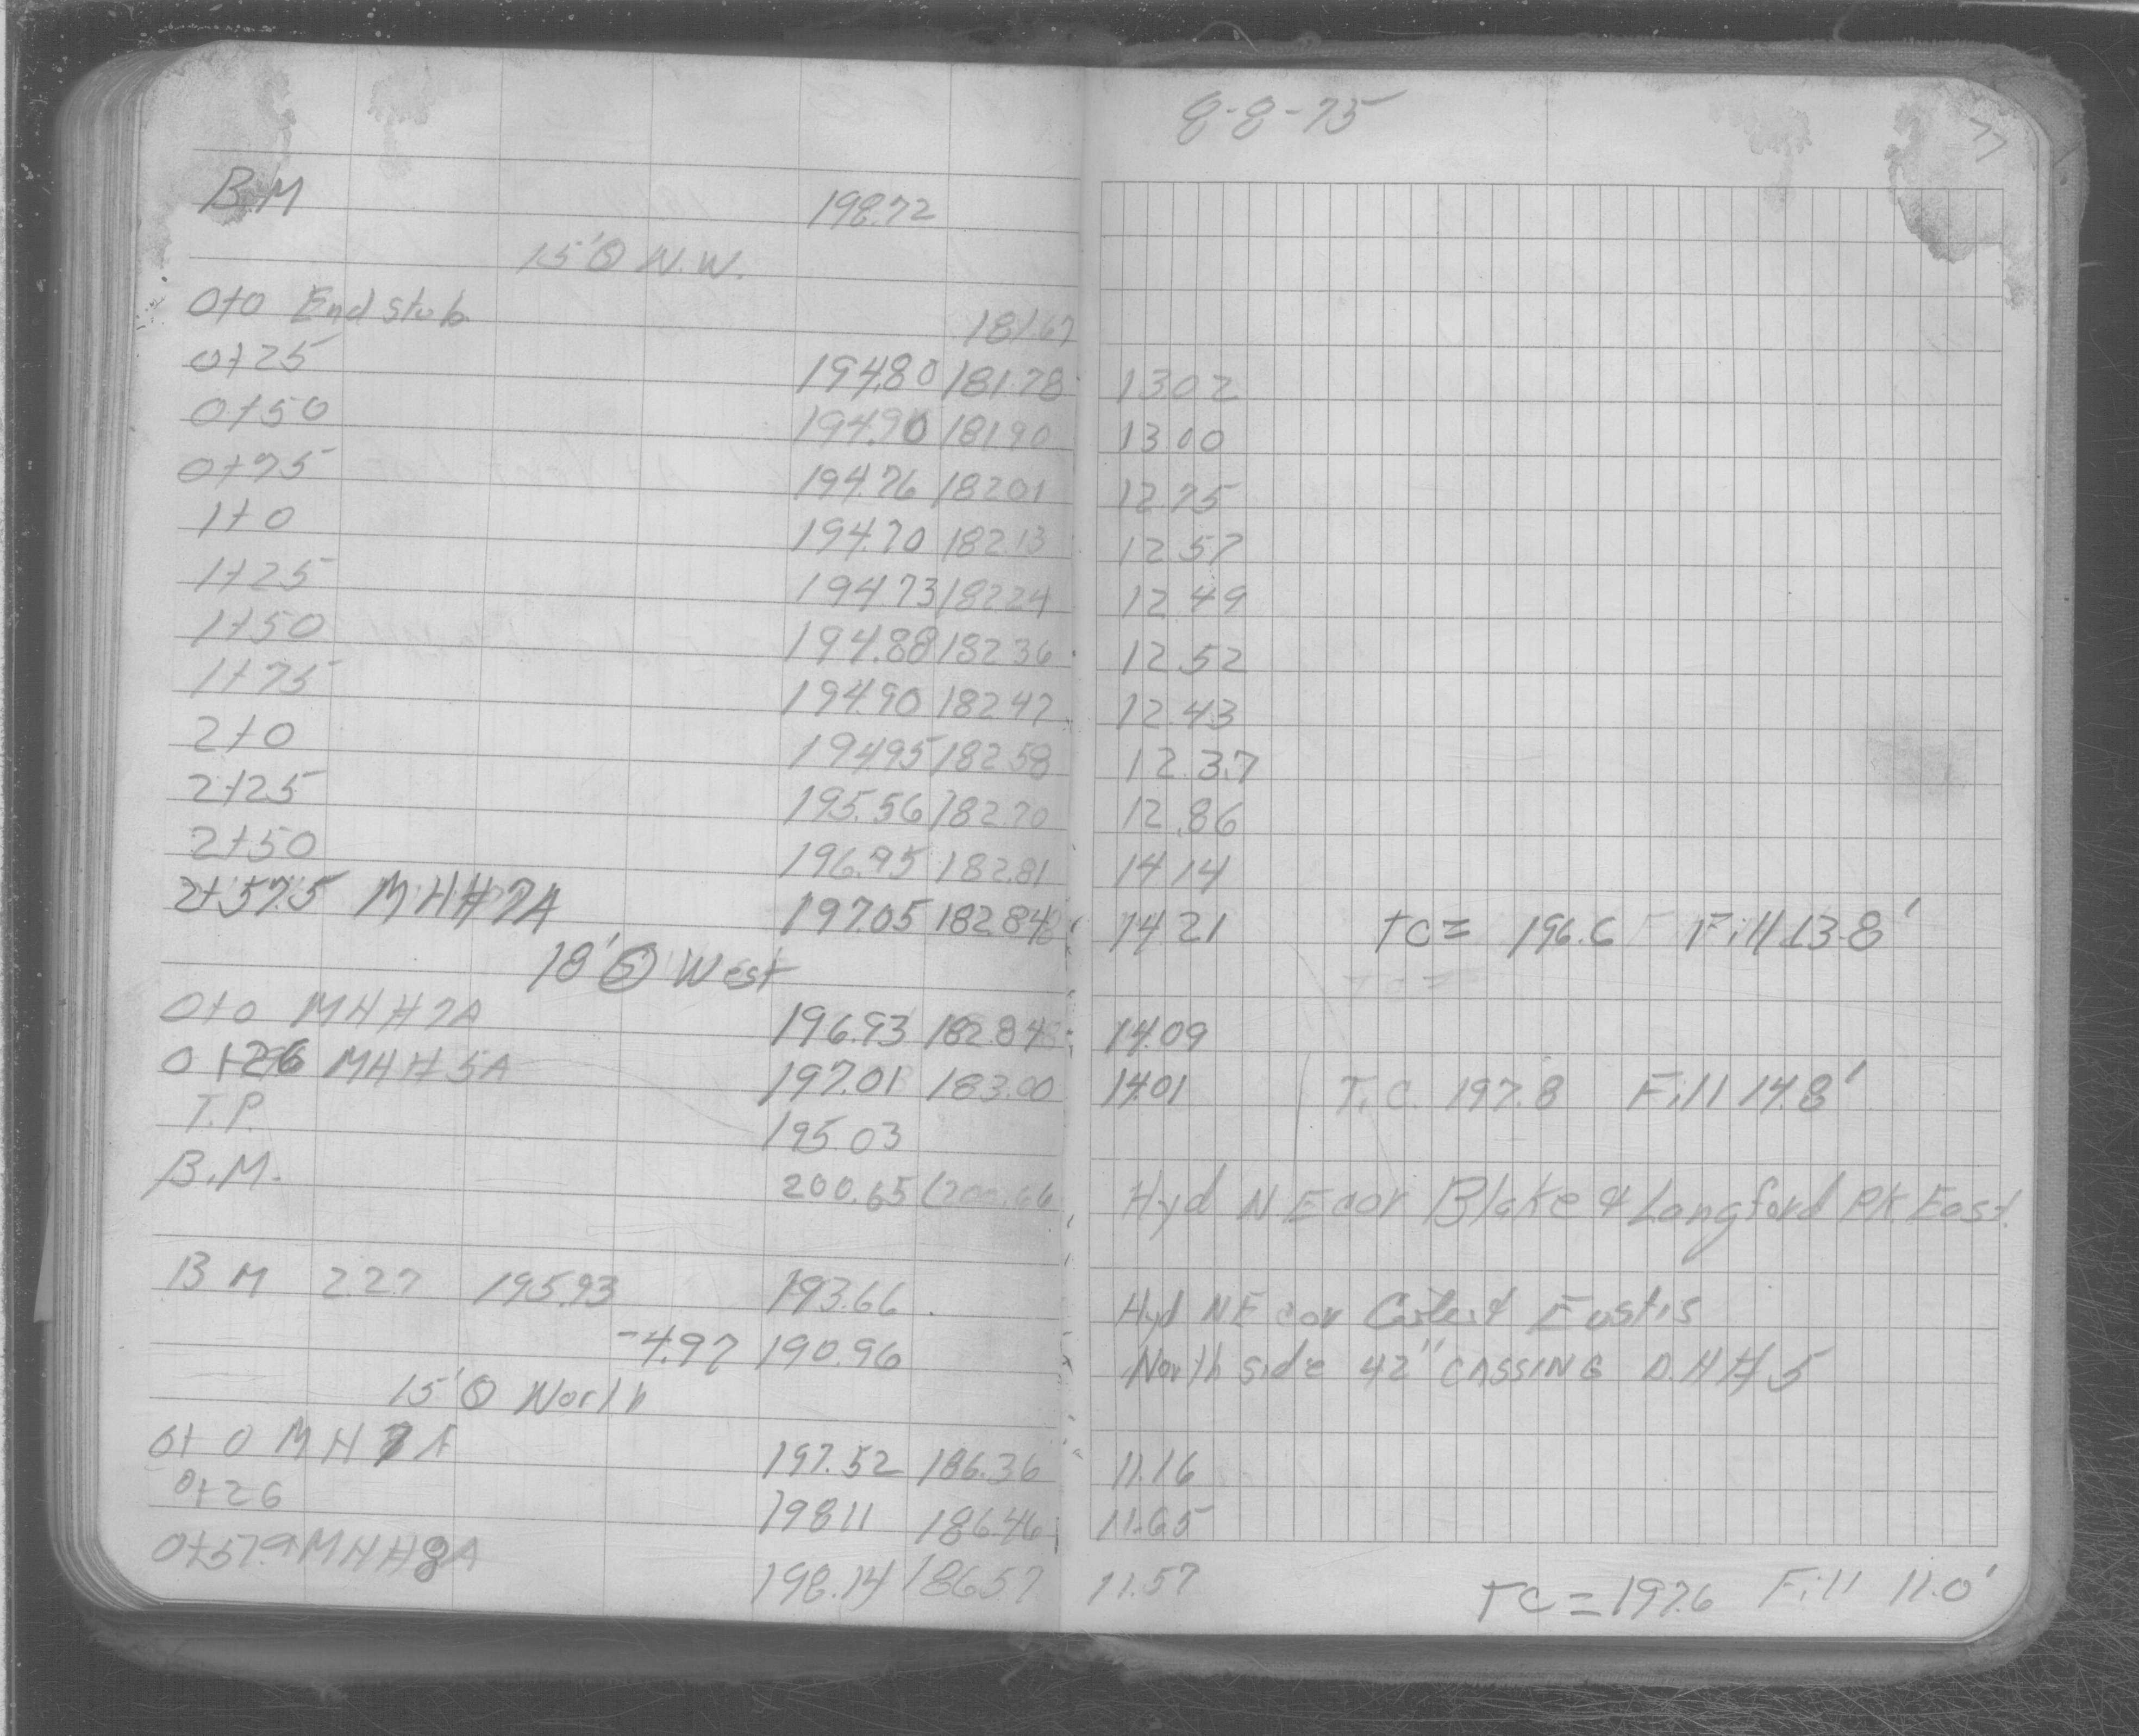 8-8-75
77
B.M 198.72
15' Ⓢ N.W.
0+0 End Stub 181.67
0+25 194.80 181.78 13.02
0+50 194.90 181.90 13.00
0+75 194.76 182.01 12.75
1+0 194.70 182.13 12.57
1+25 194.73 182.24 12.49
1+50 194.88 182.36 12.52
1+75 194.90 182.47 12.43
2+0 194.95 182.58 12.37
2+25 195.56 182.70 12.86
2+50 196.95 182.81 14.14
2+57.5 MH#7A 197.05 182.84 14.21 TC= 196.6 Fill 13.8'
18' Ⓢ West
0+0 MH#7A 196.93 182.84 14.09
0+26 MH#5A 197.01 183.00 14.01 T.C. 197.8 Fill 14.8'
T.P. 195.03
B.M. 200.65 (200.66 Hyd N E cor Blake & Langford PK. East.
BM 2.27 195.93 193.66 Hyd NE cor & Eustis
-4.97 190.96 North side 42" CASSING D.H#5
15' Ⓢ North
0+0 MH 7A 197.52 186.36 11.16
0+26 198.11 186.46 11.65
0+57.9 MH#8A 198.14 186.57 11.57 TC=197.6 Fill 11.0'